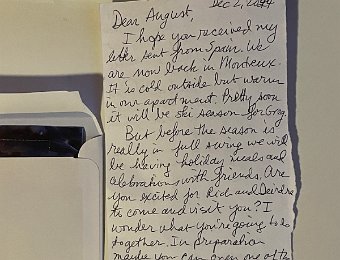 Dec 2, 2014
Dear August,
I hope you received my
letter sent from Spain. We
are now back in Montreux.
It is cold outside but warm
in our apartment. Pretty soon
it will be ski season for Greg.
But before the season is
really in full swing we will
be having holiday meals and
celebrations with friends. Are
you excited for Kid and Deirdre
to come and visit you? I
wonder what you're going to do
together. In preparation
maybe you can even one of the